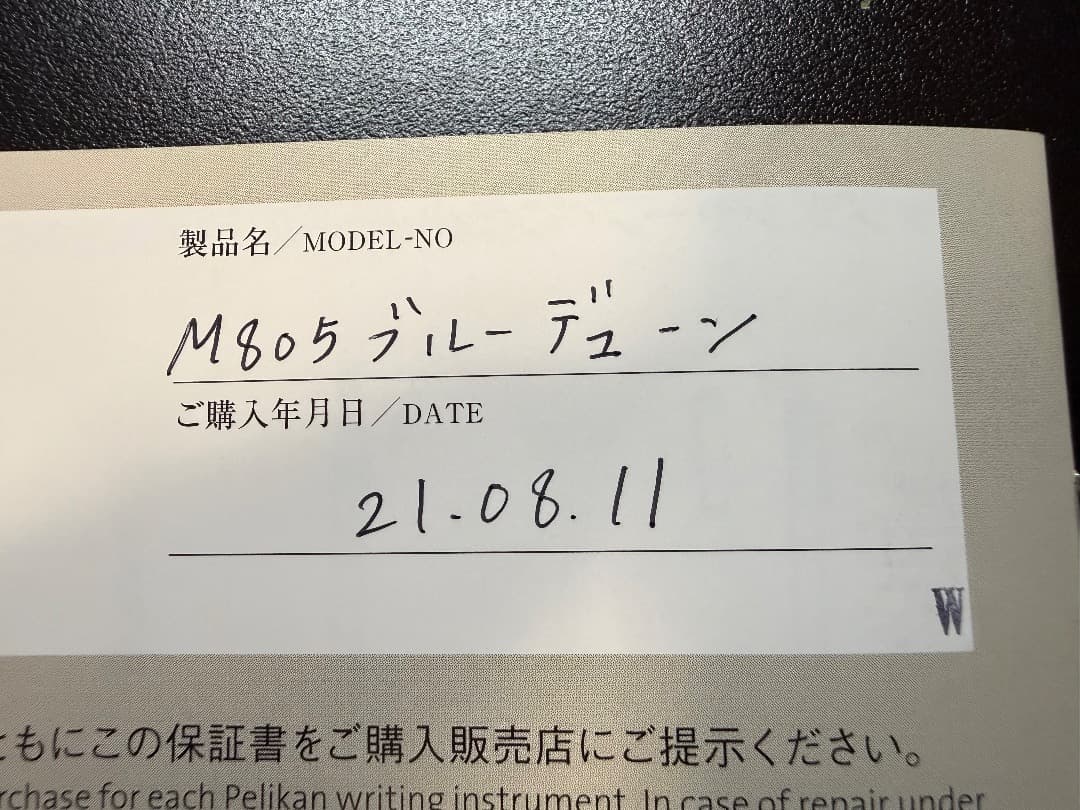 製品名／MODEL-NO
M805 ブルー デューン
ご購入年月日／DATE
21.08.11
W
ともにこの保証書をご購入販売店にご提示ください。
rchase for each Pelikan writing instrument. In case of repair under